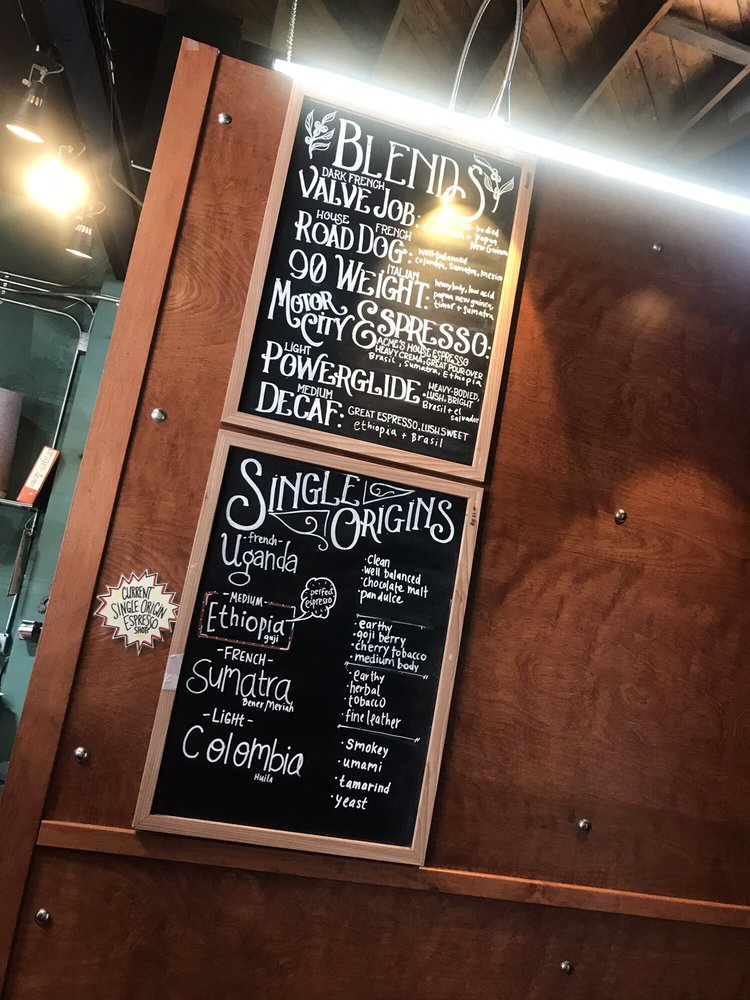 BLENDS
DARK FRENCH
VALVE JOB:
bodied
+ papua
New Guinea
HOUSE FRENCH
ROAD DOG:
well-balanced
colombia, Sumatra, Mexico
ITALIAN
90 WEIGHT:
heavybody, low acid
papua new guinea,
timor + sumatra
MOTOR CITY ESPRESSO:
ACME'S HOUSE ESPRESSO
HEAVY CREMA, GREAT POUR OVER
Brasil, Sumatra, Ethiopia
LIGHT
POWERGLIDE
HEAVY-BODIED,
LUSH, BRIGHT
Brasil + el
salvador
MEDIUM
DECAF:
GREAT ESPRESSO, LUSH, SWEET
ethiopia + Brasil
SINGLE ORIGINS
-french-
Uganda
·Clean
·well balanced
·chocolate malt
·pan dulce
-MEDIUM-
Ethiopia
guji
perfect
espresso
·earthy
·goji berry
·cherry tobacco
·medium body
-FRENCH-
Sumatra
Bener Meriah
·earthy
·herbal
·tobacco
·fine leather
-LIGHT-
Colombia
Huila
·Smokey
·umami
·tamarind
·yeast
CURRENT
SINGLE ORIGIN
ESPRESSO
SHOT!